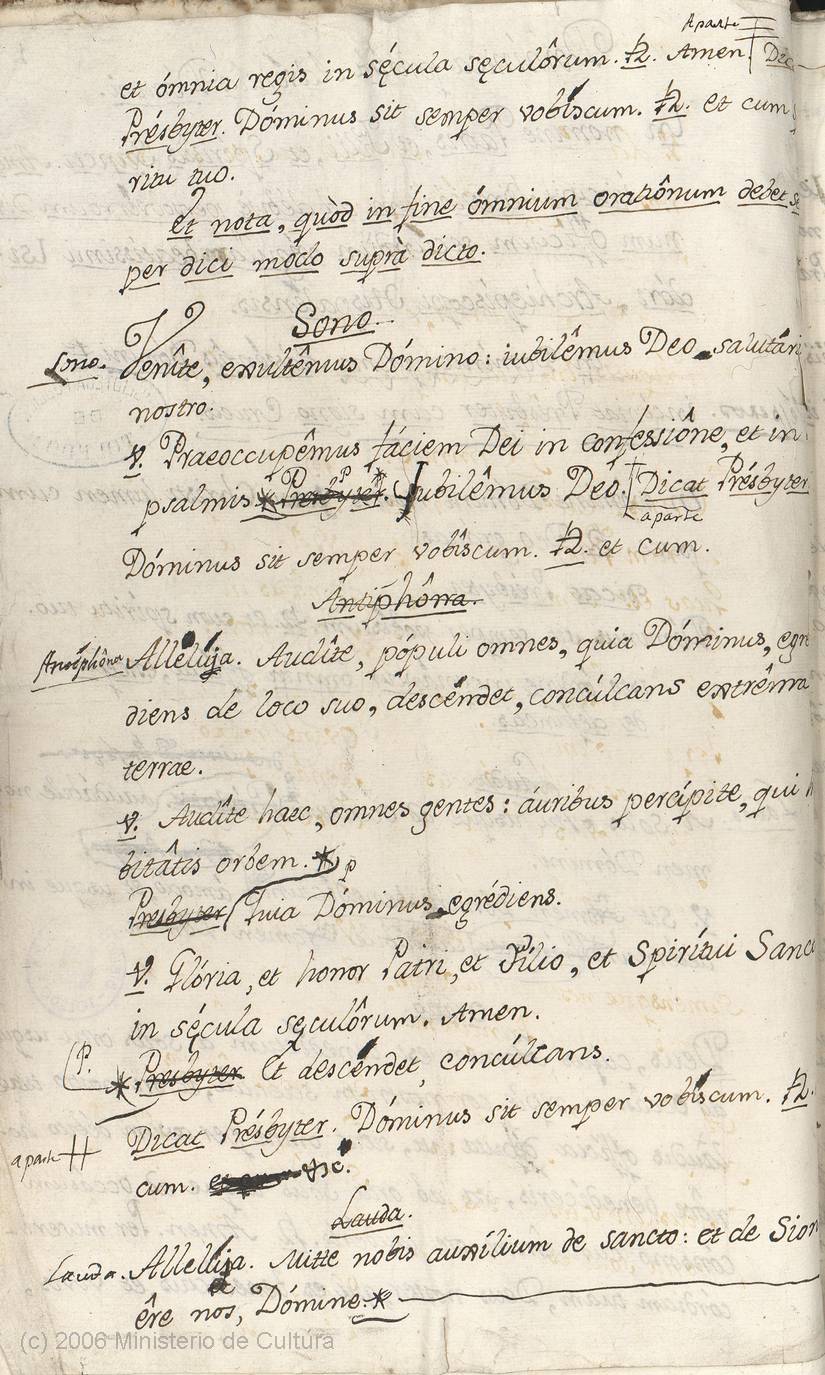 Aparte
et ómnia regis in sęcula sęculôrum. R. Amen. Dic
Présbyter. Dóminus sit semper vobîscum. R. et cum
ritu tuo.
et nota, quòd in fine ómnium orationûm debet se
per dici modo suprà dicto.
Sono.
Sono. Venîte, exultêmus Dómino: iubilêmus Deo salutári
nostro.
V. Praeoccupêmus fáciem Dei in confessiône, et in
psalmis. * Presbyter. P Jubilêmus Deo. Dicat Présbyter
aparte
Dóminus sit semper vobîscum. R. et cum.
Antiphôna.
Antíphôna Allelúja. Audîte, pópuli omnes, quia Dóminus, egre
diens de loco suo, descéndet, concúlcans extrêma
terrae.
V. Audîte haec, omnes gentes: áuribus percípite, qui h
bitâtis orbem. * P
Presbyter Quia Dóminus egrédiens.
V. Glória, et honor Patri, et Fílio, et Spirítui Sanc
in sécula sęculôrum. Amen.
P. * Presbyter Et descéndet, concúlcans.
Dicat Présbyter. Dóminus sit semper vobíscum. R.
a parte cum.
Lauda.
Lauda. Allelúja. Mitte nobis auxílium de sancto: et de Sion
êre nos, Dómine. *
(c) 2006 Ministerio de Cultura